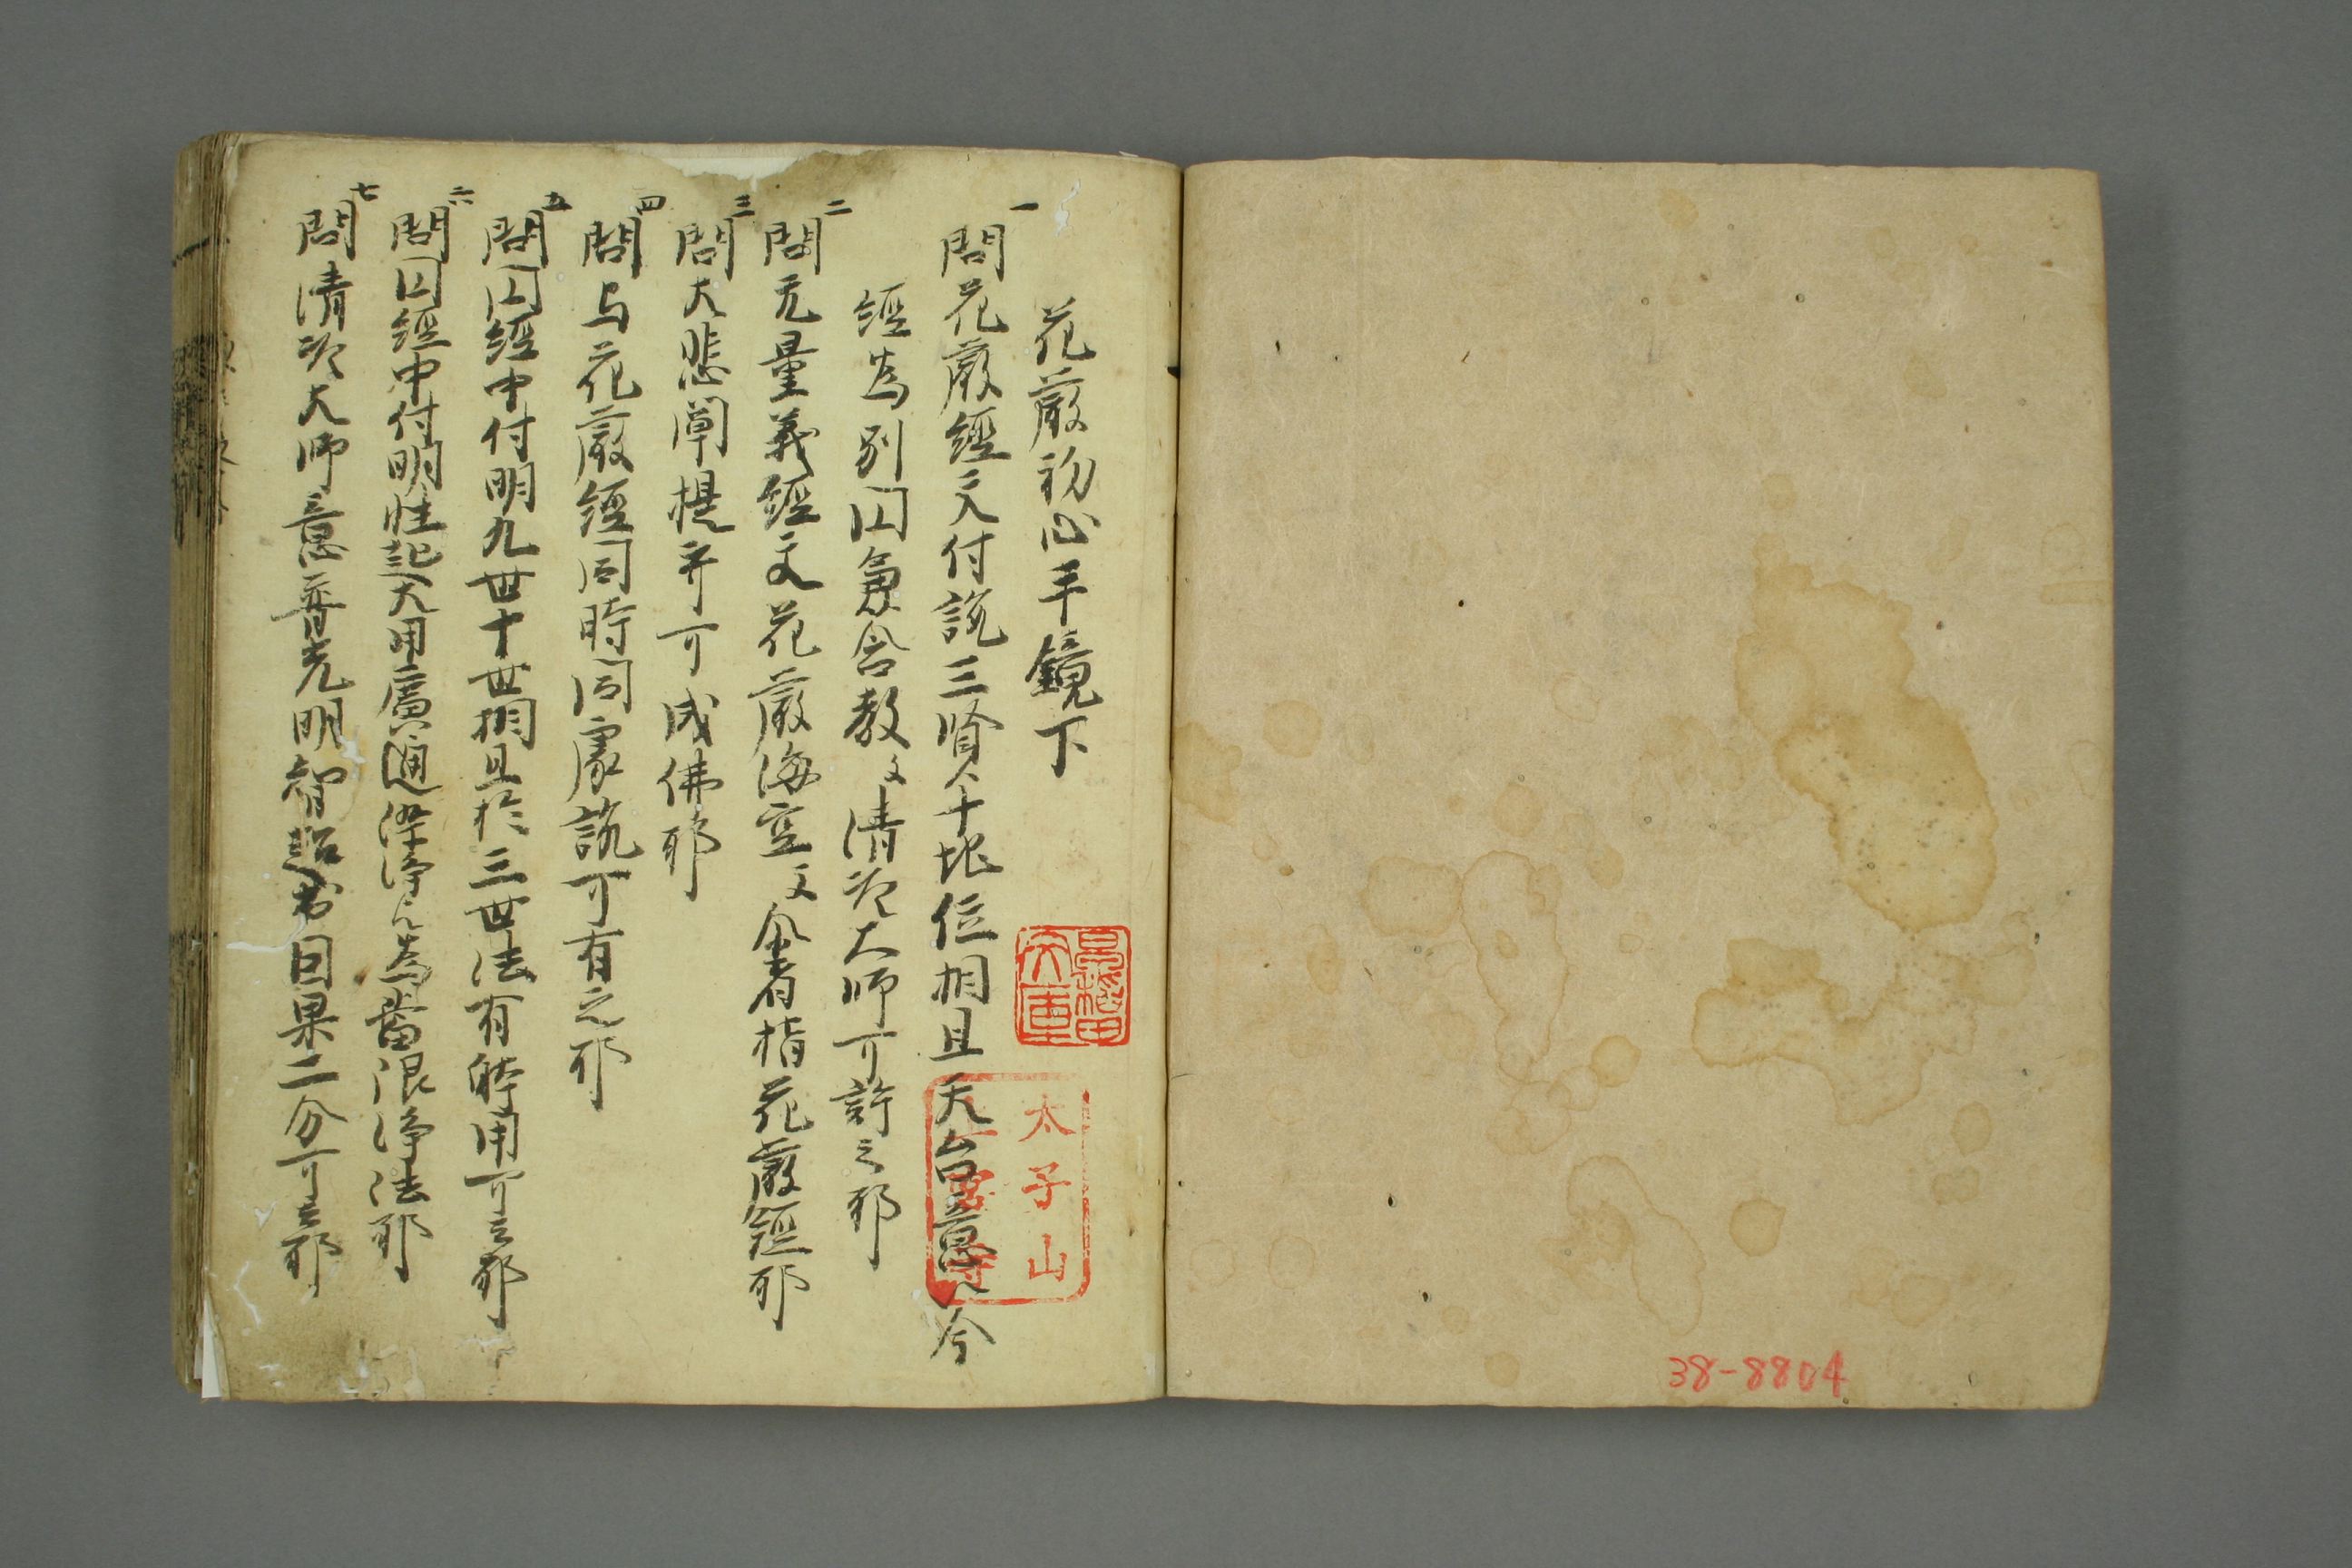 花嚴初心手鏡下
一
問花嚴經文付説三賢十地位相且天台意今
經為別円兼含教文清凉大師可許之耶
二
問无量義經文花嚴海空文尒者指花嚴經耶
三
問大悲闡提并可成佛耶
四
問与花嚴經同時同處説可有之耶
五
問円經中付明九世十世相且於三世法有躰用可云耶
六
問円經中付明性起大用廣通染淨為當限淨法耶
七
問清凉大師意普光明智超出因果二分可云耶
太子山
文庫
38-8804